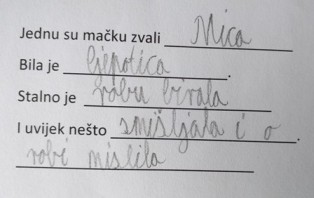 Jednu su mačku zvali Mica
Bila je ljepotica.
Stalno je robu birala
I uvijek nešto smišljala i o
robi mislila